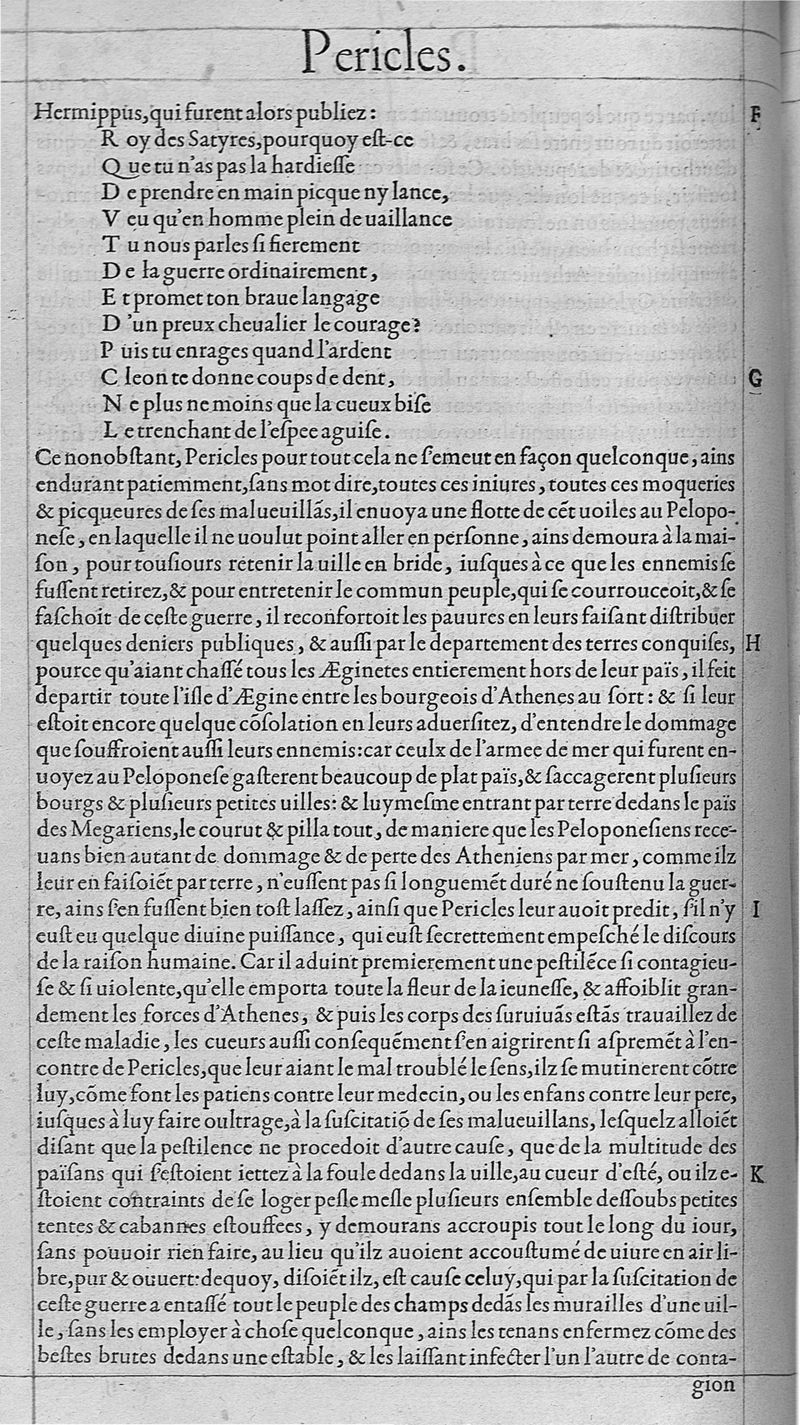 Pericles.
Hermippus, qui furent alors publiez : F
R oy des Satyres, pourquoy eſt-ce
Que tu n'as pas la hardieſſe
D e prendre en main picque ny lance,
V eu qu'en homme plein de uaillance
T u nous parles ſi fierement
D e la guerre ordinairement,
E t promet ton braue langage
D 'un preux cheualier le courage?
P uis tu enrages quand l'ardent
C leon te donne coups de dent, G
N e plus ne moins que la cueux biſe
L e trenchant de l'eſpee aguiſe.
Ce nonobſtant, Pericles pour tout cela ne ſ'emeut en façon quelconque, ains
endurant patiemment, ſans mot dire, toutes ces iniures, toutes ces moqueries
& picqueures de ſes malueuillãs, il enuoya une flotte de cẽt uoiles au Pelopo-
neſe, en laquelle il ne uoulut point aller en perſonne, ains demoura à la mai-
ſon, pour touſiours retenir la uille en bride, iuſques à ce que les ennemis ſe
fuſſent retirez, & pour entretenir le commun peuple, qui ſe courrouceoit, & ſe
faſchoit de ceſte guerre, il reconfortoit les pauures en leurs faiſant diſtribuer
quelques deniers publiques, & auſſi par le departement des terres conquiſes, H
pource qu'aiant chaſſé tous les Æginetes entierement hors de leur païs, il feit
departir toute l'iſle d'Ægine entre les bourgeois d'Athenes au ſort : & ſi leur
eſtoit encore quelque cõſolation en leurs aduerſitez, d'entendre le dommage
que ſouffroient auſſi leurs ennemis: car ceulx de l'armee de mer qui furent en-
uoyez au Peloponeſe gaſterent beaucoup de plat païs, & ſaccagerent pluſieurs
bourgs & pluſieurs petites uilles: & luymeſme entrant par terre dedans le païs
des Megariens, le courut & pilla tout, de maniere que les Peloponeſiens rece-
uans bien autant de dommage & de perte des Atheniens par mer, comme ilz
leur en faiſoiẽt par terre, n'euſſent pas ſi longuemẽt duré ne ſouſtenu la guer-
re, ains ſ'en fuſſent bien toſt laſſez, ainſi que Pericles leur auoit predit, ſ'il n'y I
euſt eu quelque diuine puiſſance, qui euſt ſecrettement empeſché le diſcours
de la raiſon humaine. Car il aduint premierement une peſtilẽce ſi contagieu-
ſe & ſi uiolente, qu'elle emporta toute la fleur de la ieuneſſe, & affoiblit gran-
dement les forces d'Athenes, & puis les corps des ſuruiuãs eſtãs trauaillez de
ceſte maladie, les cueurs auſſi conſequẽment ſ'en aigrirent ſi aſpremẽt à l'en-
contre de Pericles, que leur aiant le mal troublé le ſens, ilz ſe mutinerent cõtre
luy, cõme font les patiens contre leur medecin, ou les enfans contre leur pere,
iuſques à luy faire oultrage, à la ſuſcitatiõ de ſes malueuillans, leſquelz alloiẽt
diſant que la peſtilence ne procedoit d'autre cauſe, que de la multitude des
païſans qui ſ'eſtoient iettez à la foule dedans la uille, au cueur d'eſté, ou ilz e- K
ſtoient contraints de ſe loger peſle meſle pluſieurs enſemble deſſoubs petites
tentes & cabannes eſtouffees, y demourans accroupis tout le long du iour,
ſans pouuoir rien faire, au lieu qu'ilz auoient accouſtumé de uiure en air li-
bre, pur & ouuert: dequoy, diſoiẽt ilz, eſt cauſe celuy, qui par la ſuſcitation de
ceſte guerre a entaſſé tout le peuple des champs dedãs les murailles d'une uil-
le, ſans les employer à choſe quelconque, ains les tenans enfermez cõme des
beſtes brutes dedans une eſtable, & les laiſſant infecter l'un l'autre de conta-
gion